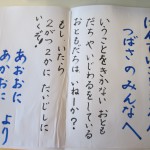 つばさのみんなへ
いうことをきかない おとも
だちや いじわるをしている
おともだちは いねーか?
もし、いたら
2がつ2かに たいじしに
いくぞ!
あおおに
あかおに より